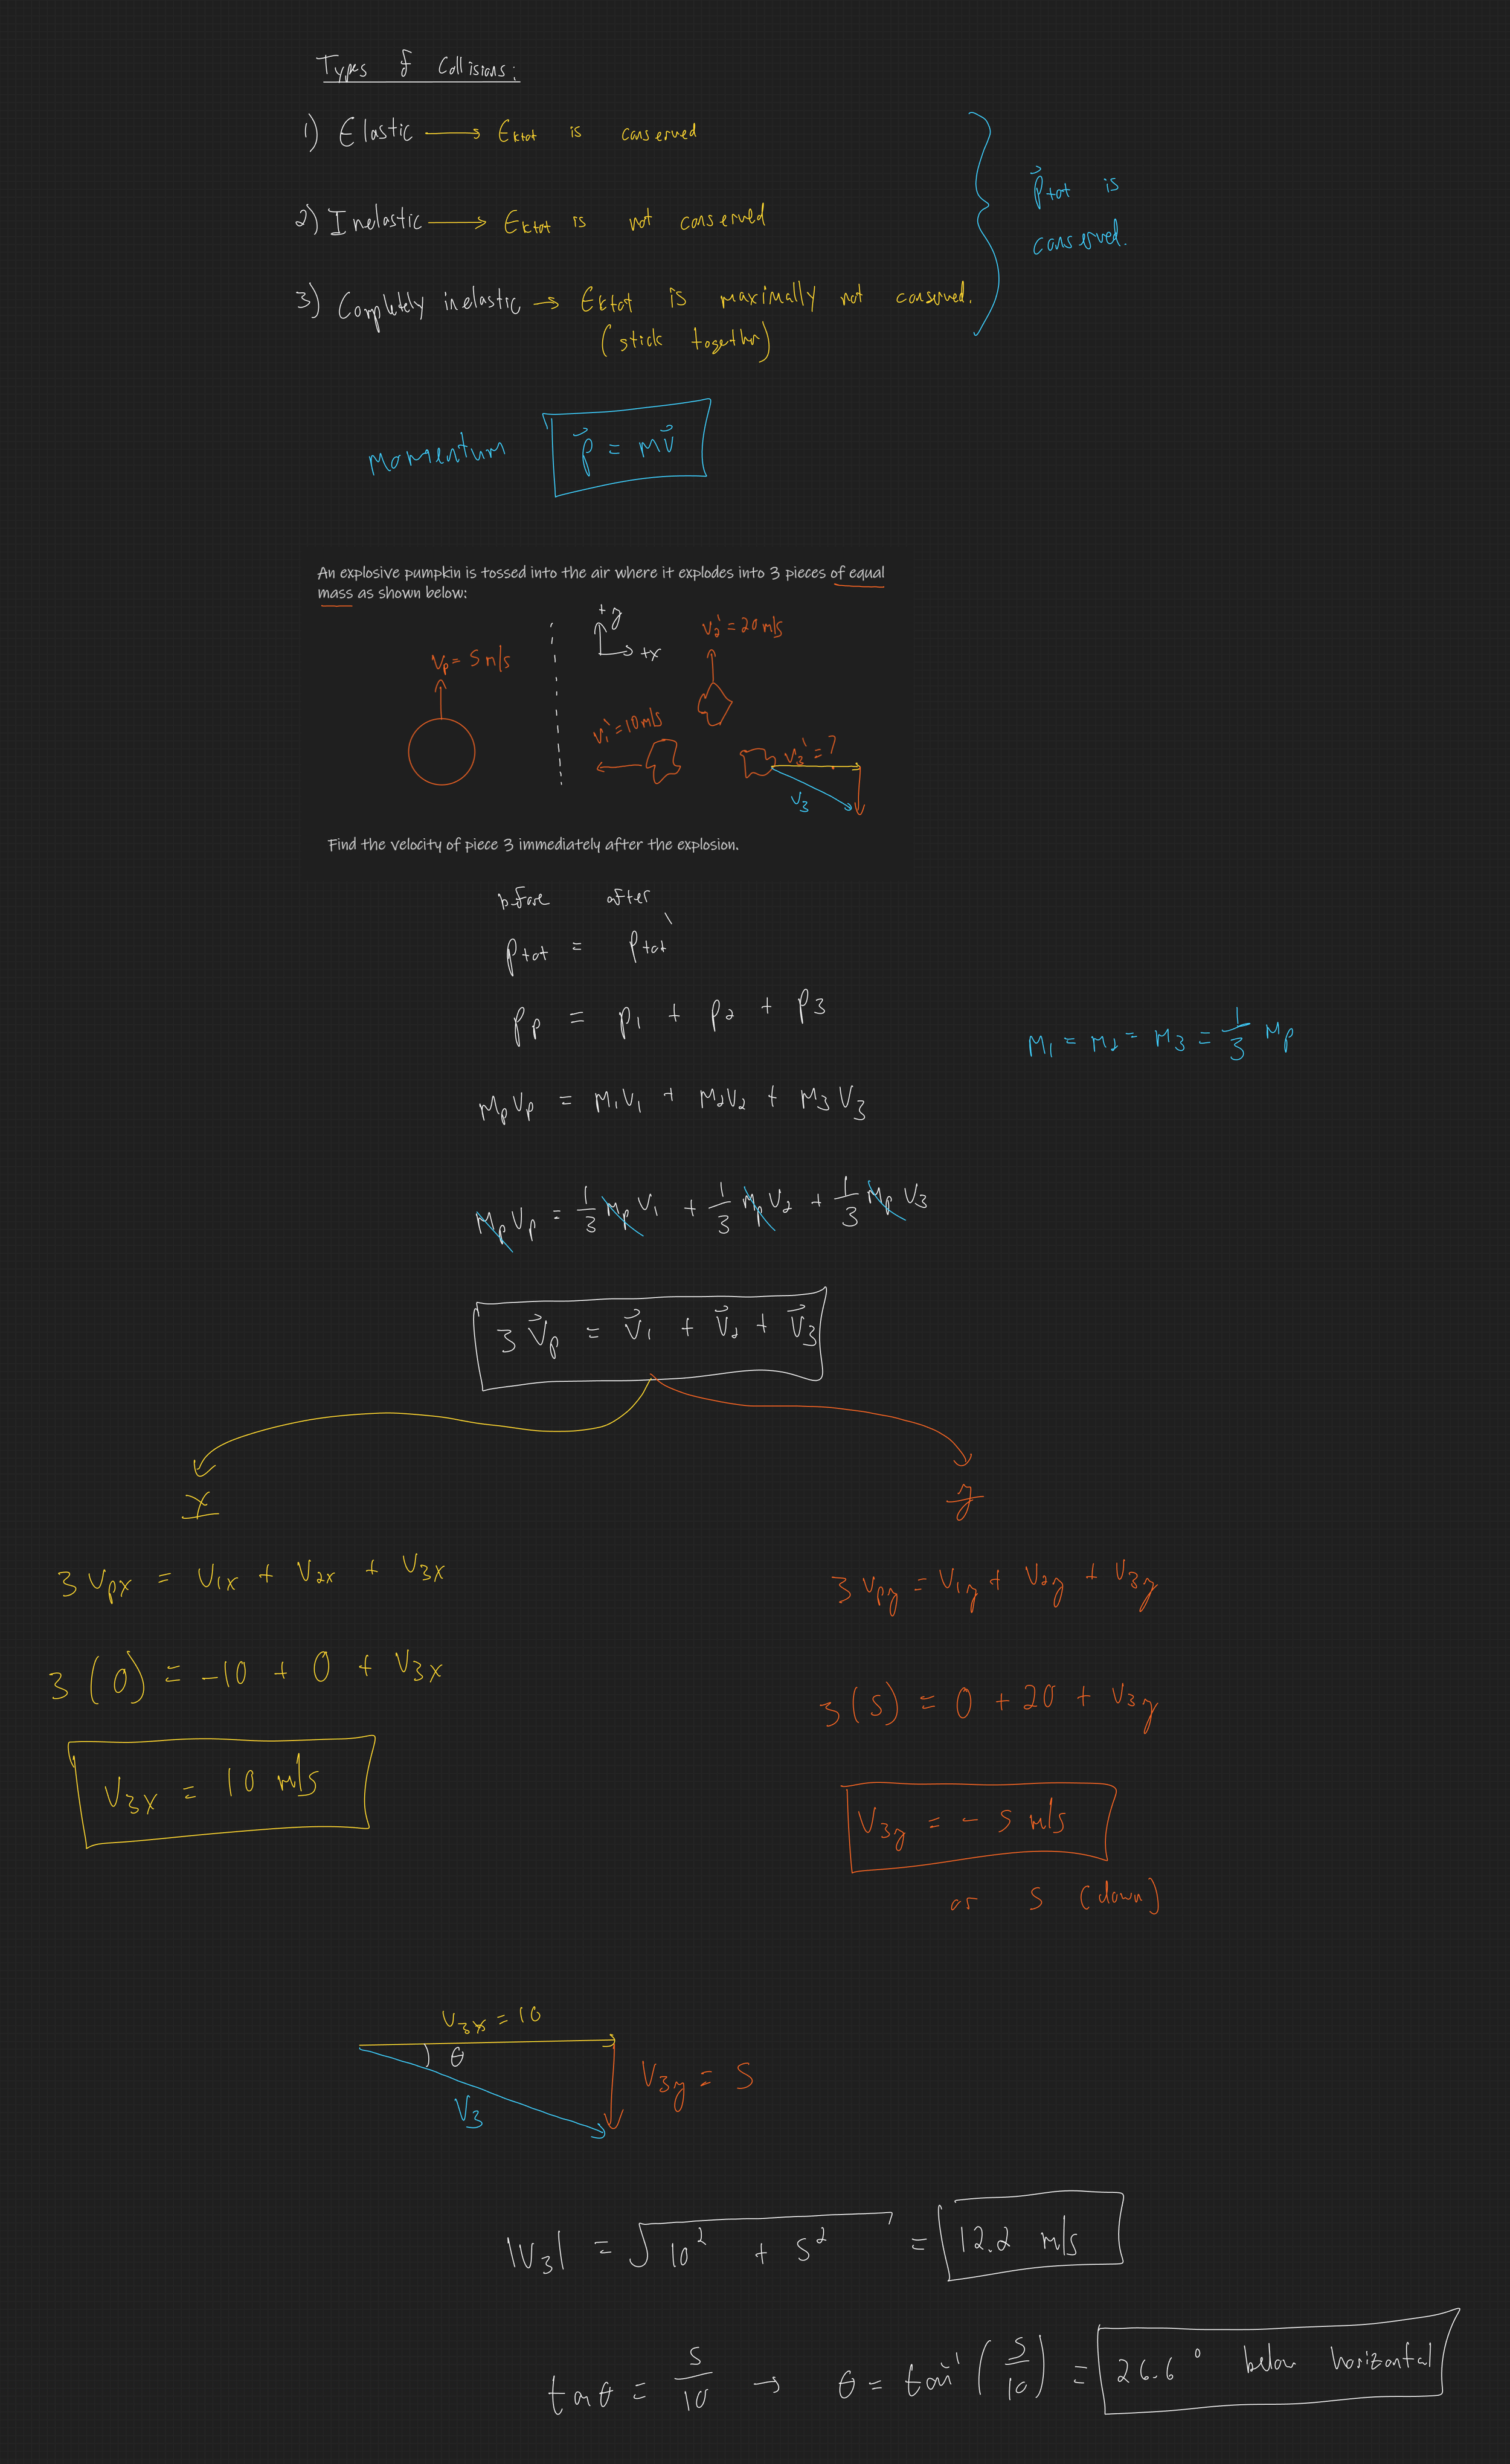 Types of Collisions:
1) Elastic → Ektot is conserved
2) Inelastic → Ektot is not conserved
3) Completely inelastic → Ektot is maximally not conserved.
(stick together)
p⃗tot is
conserved.
Momentum p⃗ = mv⃗
An explosive pumpkin is tossed into the air where it explodes into 3 pieces of equal
mass as shown below:
+y
+x
Vp = 5 m/s
V2' = 20 m/s
V1' = 10 m/s
V3' = ?
V3
Find the velocity of piece 3 immediately after the explosion.
before after
Ptot = Ptot'
Pp = P1 + P2 + P3
M1 = M2 = M3 = 1/3 Mp
MpVp = M1V1 + M2V2 + M3V3
MpVp = 1/3 MpV1 + 1/3 MpV2 + 1/3 MpV3
3V⃗p = V⃗1 + V⃗2 + V⃗3
x
3Vpx = V1x + V2x + V3x
3(0) = -10 + 0 + V3x
V3x = 10 m/s
y
3Vpy = V1y + V2y + V3y
3(5) = 0 + 20 + V3y
V3y = - 5 m/s
or 5 (down)
V3x = 10
θ
V3y = 5
V3
|V3| = √10² + 5² = 12.2 m/s
tanθ = 5/10 → θ = tan⁻¹(5/10) = 26.6° below horizontal